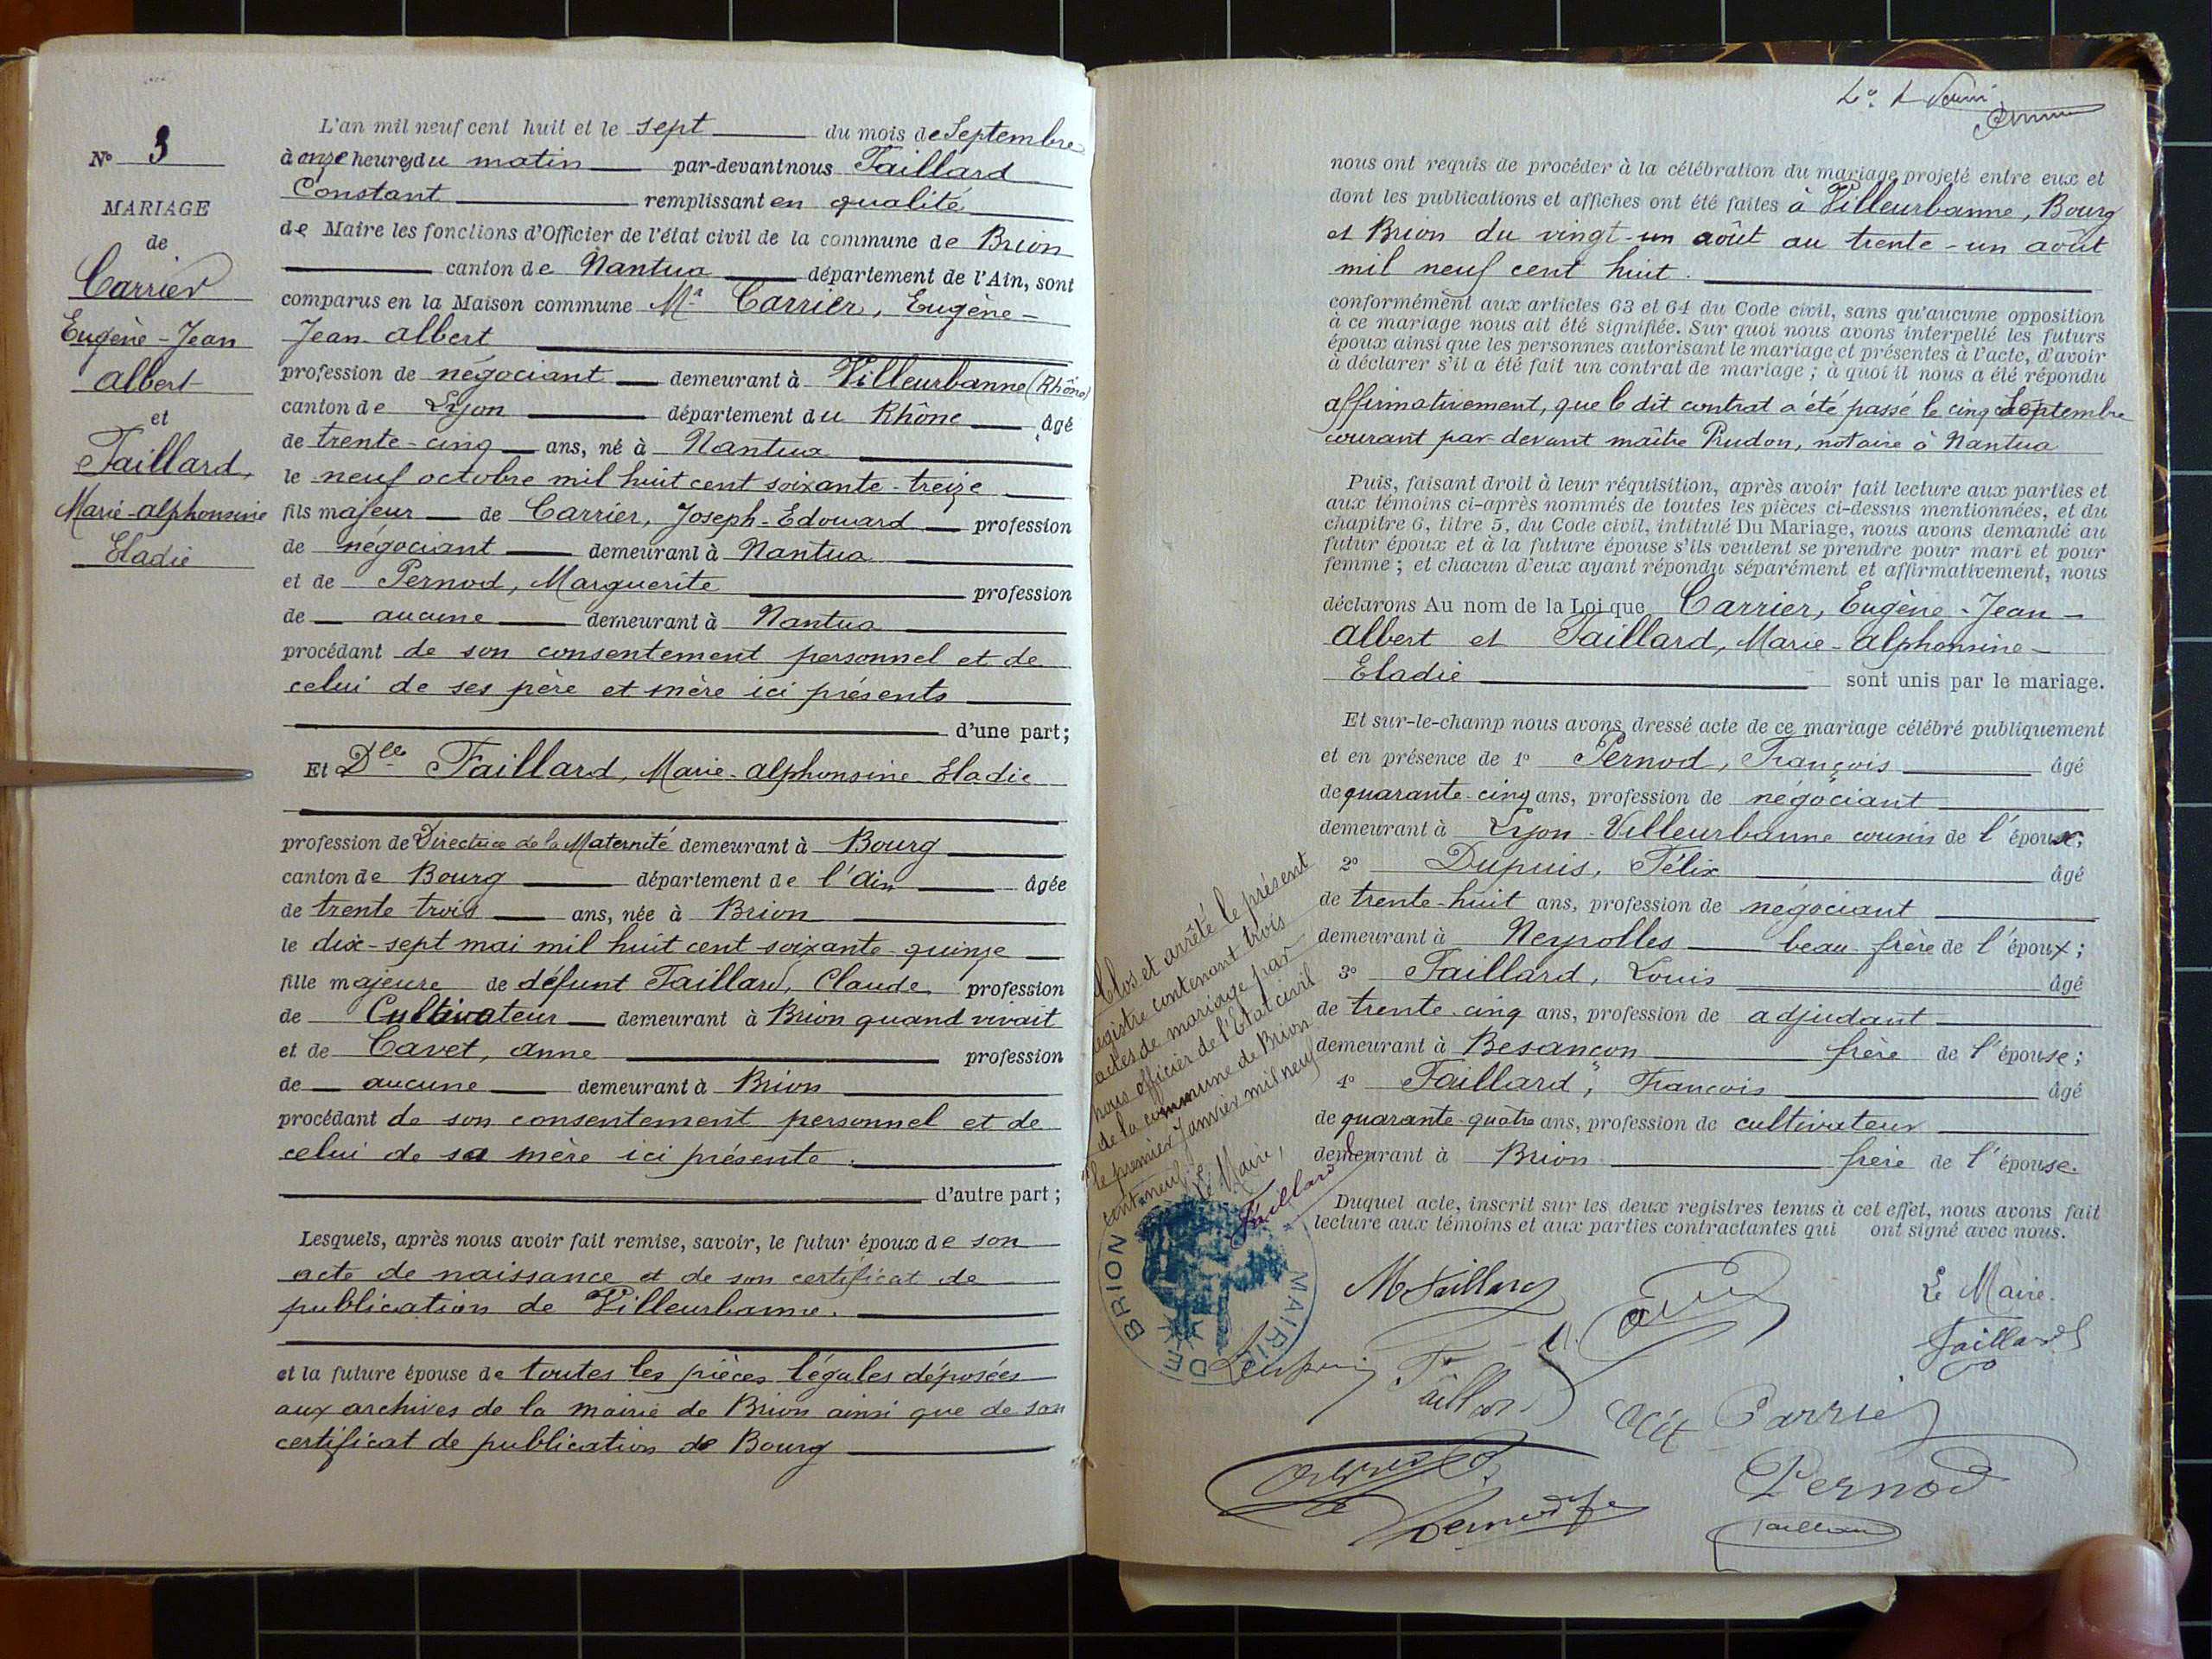 N° 3
MARIAGE
de
Carrier
Eugène-Jean
Albert
et
Taillard,
Marie-Alphonsine
Eladie
L'an mil neuf cent huit et le sept du mois de Septembre
à onze heures du matin par-devant nous Taillard
Constant remplissant en qualité
de Maire les fonctions d'Officier de l'état civil de la commune de Brion
canton de Nantua département de l'Ain, sont
comparus en la Maison commune Mr Carrier, Eugène-
Jean-Albert
profession de négociant demeurant à Villeurbanne (Rhône)
canton de Lyon département du Rhône âgé
de trente-cinq ans, né à Nantua
le neuf octobre mil huit cent soixante-treize
fils majeur de Carrier, Joseph-Edouard profession
de négociant demeurant à Nantua
et de Pernod, Marguerite profession
de aucune demeurant à Nantua
procédant de son consentement personnel et de
celui de ses père et mère ici présents
d'une part;
Et Dlle Taillard, Marie-Alphonsine Eladie
profession de Directrice de la Maternité demeurant à Bourg
canton de Bourg département de l'Ain âgée
de trente trois ans, née à Brion
le dix-sept mai mil huit cent soixante-quinze
fille majeure de défunt Taillard, Claude profession
de Cultivateur demeurant à Brion quand vivait
et de Cavet, Anne profession
de aucune demeurant à Brion
procédant de son consentement personnel et de
celui de sa mère ici présente.
d'autre part;
Lesquels, après nous avoir fait remise, savoir, le futur époux de son
acte de naissance et de son certificat de
publication de Villeurbanne.
et la future épouse de toutes les pièces légales déposées
aux archives de la mairie de Brion ainsi que de son
certificat de publication de Bourg
nous ont requis de procéder à la célébration du mariage projeté entre eux et
dont les publications et affiches ont été faites à Villeurbanne, Bourg
et Brion du vingt-un août au trente-un août
mil neuf cent huit.
conformément aux articles 63 et 64 du Code civil, sans qu'aucune opposition
à ce mariage nous ait été signifiée. Sur quoi nous avons interpellé les futurs
époux ainsi que les personnes autorisant le mariage et présentes à l'acte, d'avoir
à déclarer s'il a été fait un contrat de mariage; à quoi il nous a été répondu
affirmativement, que le dit contrat a été passé le cinq septembre
courant par-devant maître Prudon, notaire à Nantua
Puis, faisant droit à leur réquisition, après avoir fait lecture aux parties et
aux témoins ci-après nommés de toutes les pièces ci-dessus mentionnées, et du
chapitre 6, titre 5, du Code civil, intitulé Du Mariage, nous avons demandé au
futur époux et à la future épouse s'ils veulent se prendre pour mari et pour
femme; et chacun d'eux ayant répondu séparément et affirmativement, nous
déclarons Au nom de la Loi que Carrier, Eugène-Jean-
Albert et Taillard, Marie-Alphonsine-
Eladie sont unis par le mariage.
Et sur-le-champ nous avons dressé acte de ce mariage célébré publiquement
et en présence de 1° Pernod, François âgé
de quarante-cinq ans, profession de négociant
demeurant à Lyon-Villeurbanne cousin de l'époux;
2° Dupuis, Félix âgé
de trente-huit ans, profession de négociant
demeurant à Neyrolles beau-frère de l'époux;
3° Taillard, Louis âgé
de trente-cinq ans, profession de adjudant
demeurant à Besançon frère de l'épouse;
4° Taillard, François âgé
de quarante-quatre ans, profession de cultivateur
demeurant à Brion frère de l'épouse.
Duquel acte, inscrit sur les deux registres tenus à cet effet, nous avons fait
lecture aux témoins et aux parties contractantes qui ont signé avec nous.
Clos et arrêté le présent
registre contenant trois
actes de mariage par
nous officier de l'Etat civil
de la commune de Brion
le premier Janvier mil neuf
cent neuf
Le Maire,
Taillard
MAIRIE DE BRION
M Taillard
Le Maire.
Taillard
Taillard
Carrier
Pernod
Taillard